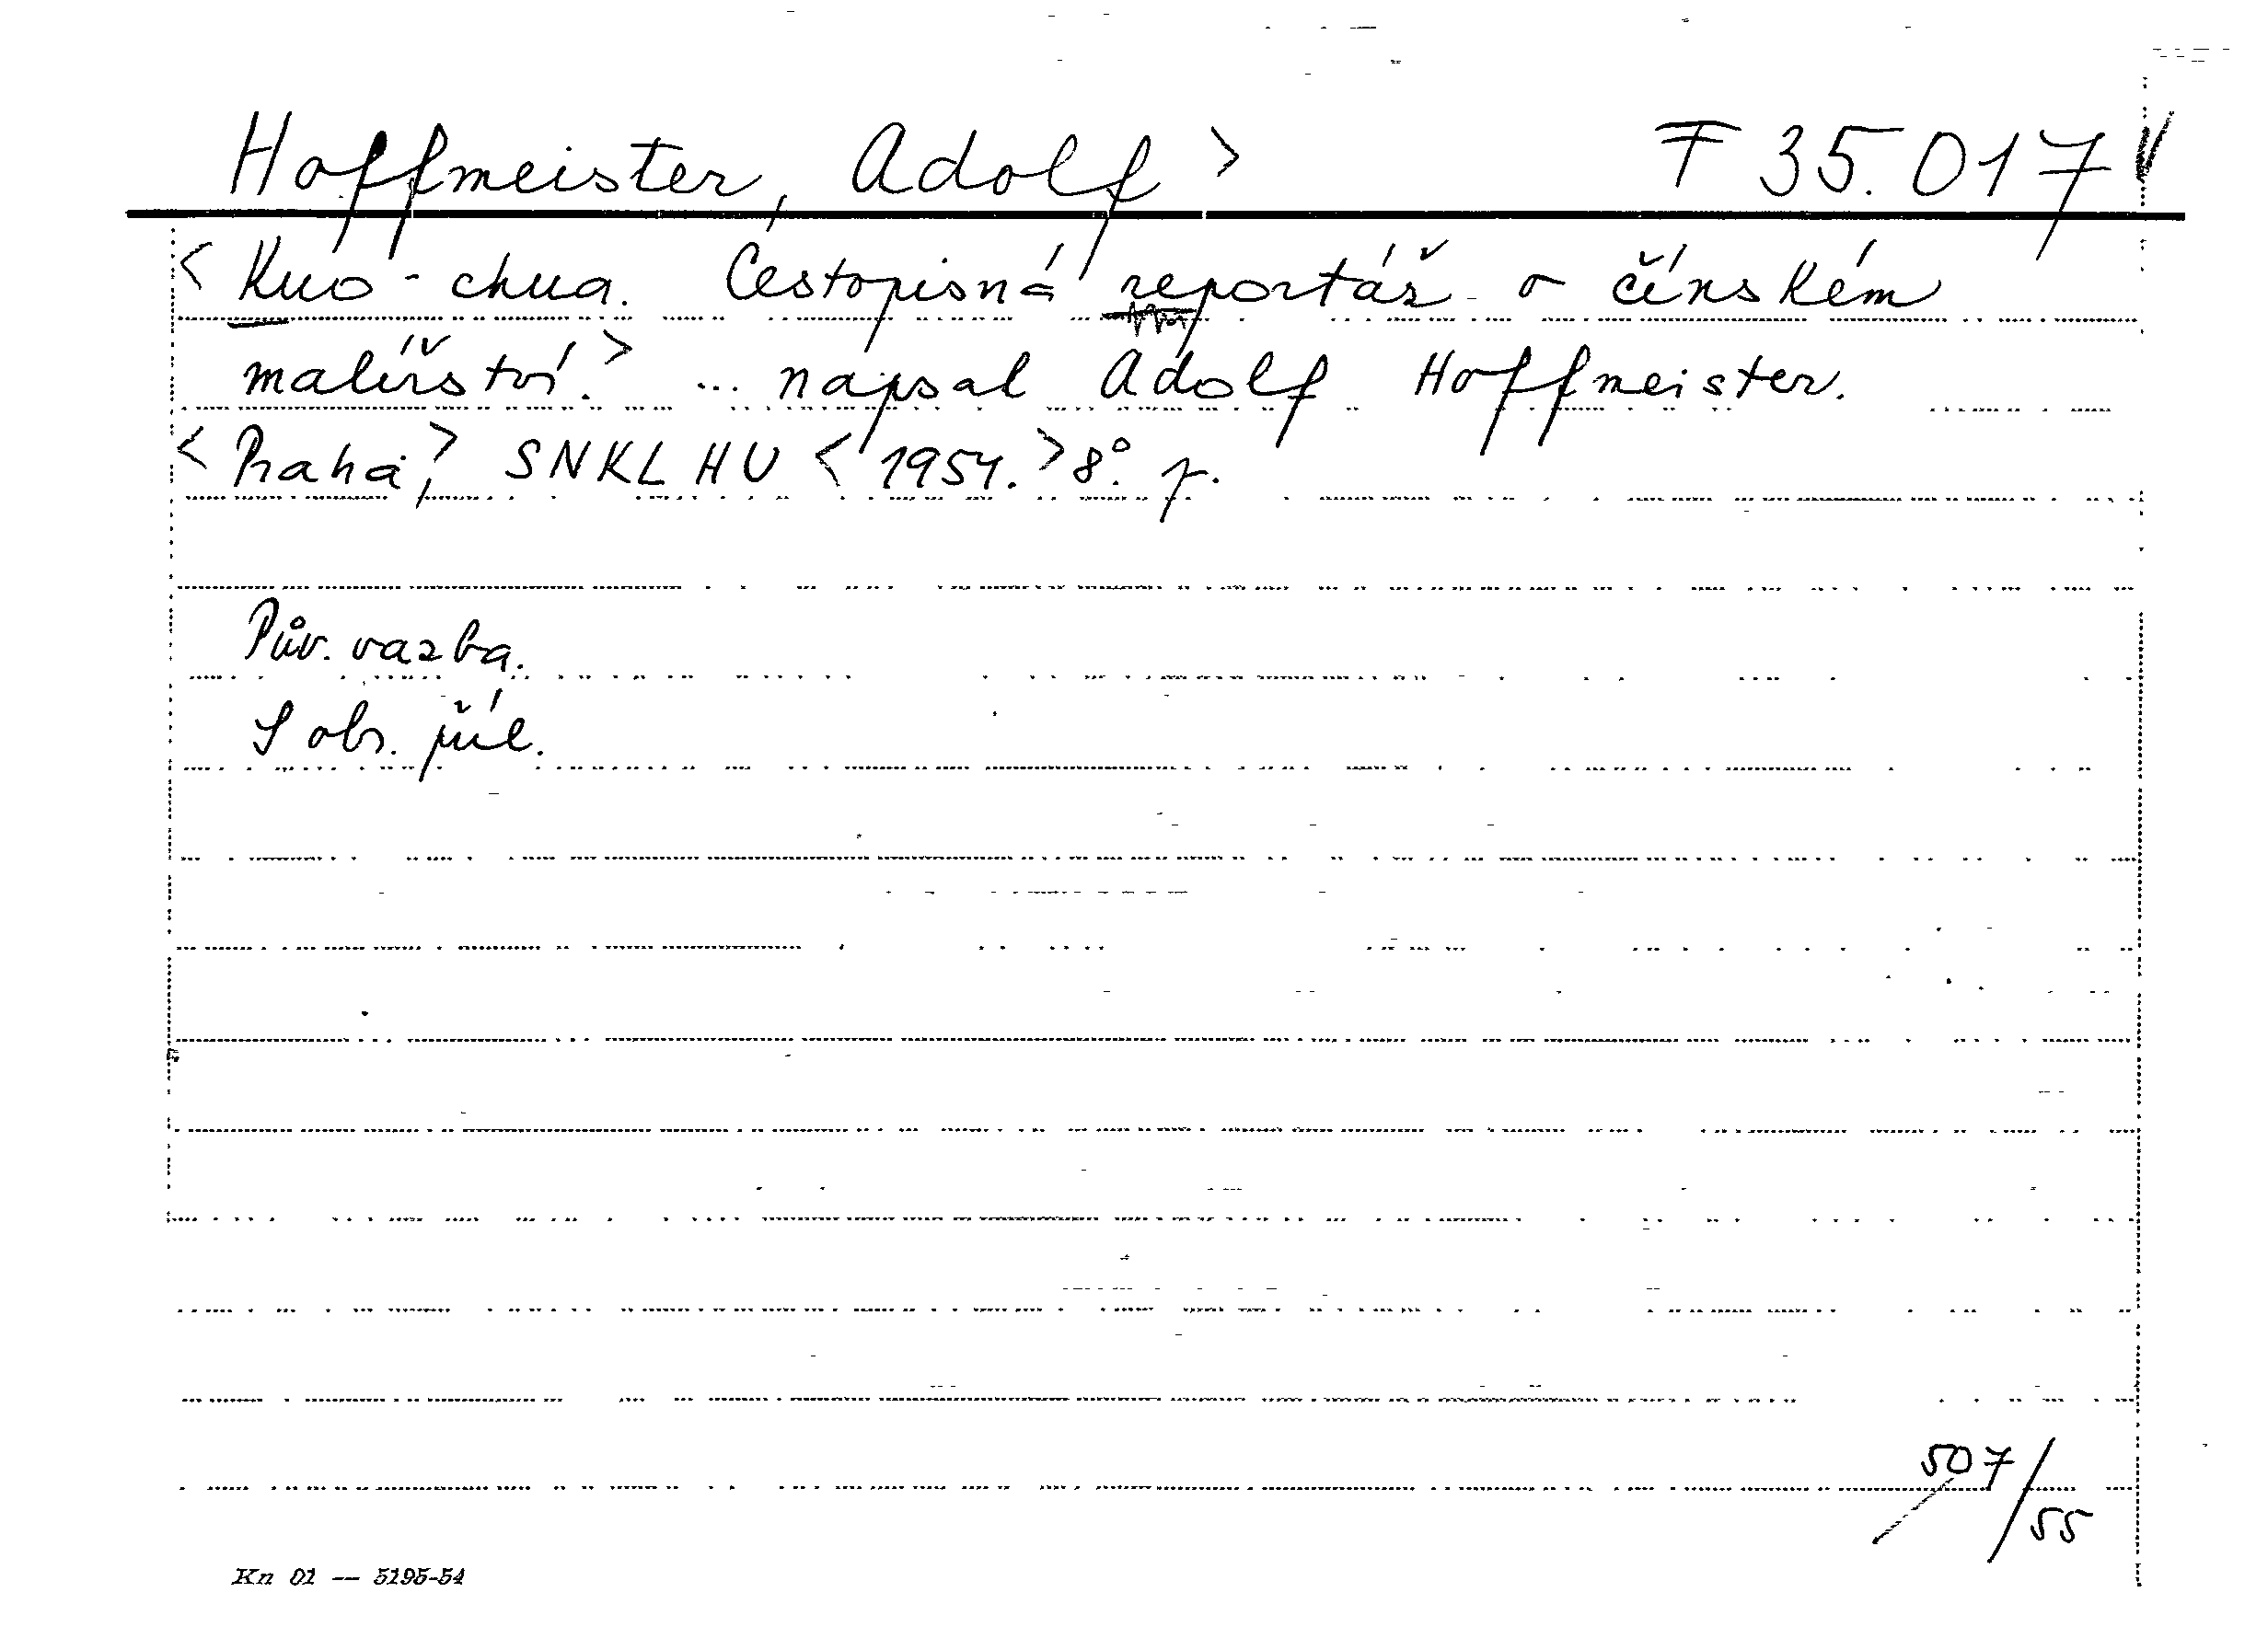 Hoffmeister, Adolf > F 35.017
< Kuo-chua. Cestopisná reportáž o čínském
malířství. > ... napsal Adolf Hoffmeister.
< Praha, > SNKLHU < 1954. > 8°. p.
Pův. vazba.
S obr. příl.
507/55
Kn 01 — 5195-54